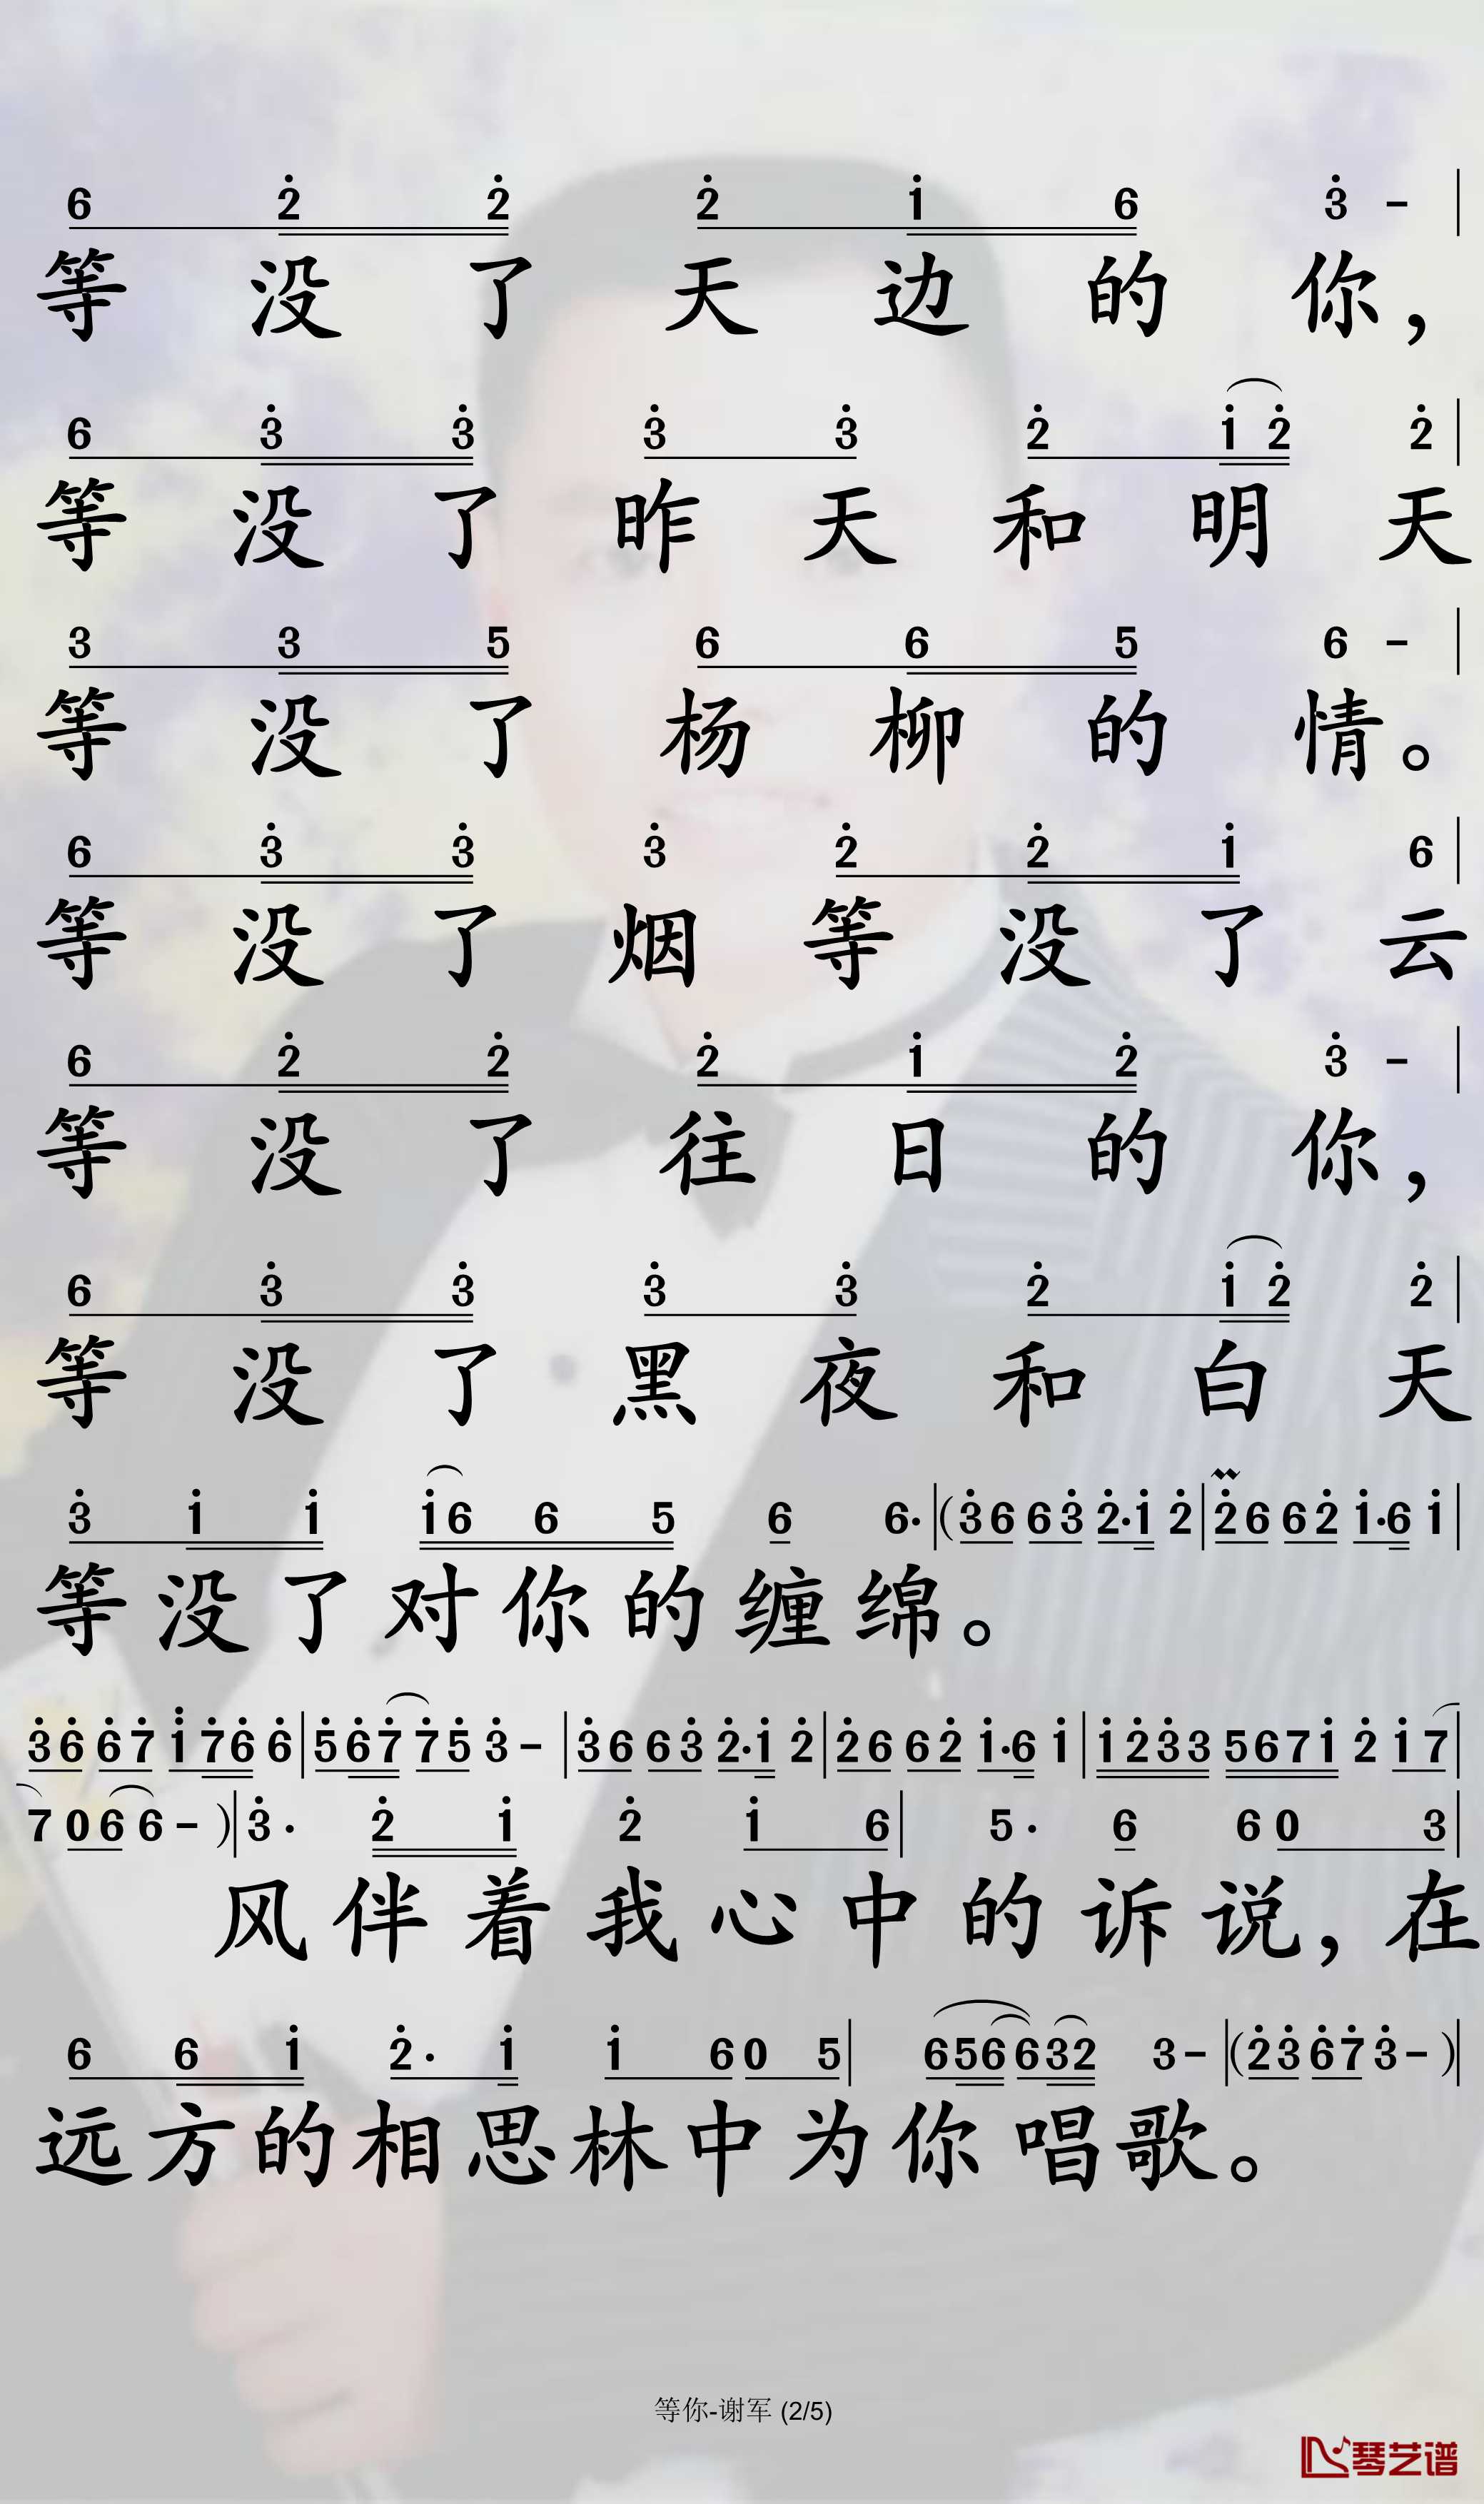 6 2̇ 2̇ 2̇ 1̇ 6 3̇ - |
等没了天边的你，
6 3̇ 3̇ 3̇ 3̇ 2̇ 1̇ 2̇ 2̇ |
等没了昨天和明天
3 3 5 6 6 5 6 - |
等没了杨柳的情。
6 3̇ 3̇ 3̇ 2̇ 2̇ 1̇ 6 |
等没了烟等没了云
6 2̇ 2̇ 2̇ 1̇ 2̇ 3̇ - |
等没了往日的你，
6 3̇ 3̇ 3̇ 3̇ 2̇ 1̇ 2̇ 2̇ |
等没了黑夜和白天
3̇ 1̇ 1̇ 1̇ 6 6 5 6 6· | (3̇ 6 6 3̇ 2̇· 1̇ 2̇ | 2̇ 6 6 2̇ 1̇· 6 1̇ |
等没了对你的缠绵。
3̇ 6̇ 6̇ 7̇ 1̈ 7̇ 6̇ 6̇ | 5̇ 6̇ 7̇ 7̇ 5̇ 3̇ - | 3̇ 6 6 3̇ 2̇· 1̇ 2̇ | 2̇ 6 6 2̇ 1̇· 6 1̇ | 1̇ 2̇ 3̇ 3 5 6 7 1̇ 2̇ 1̇ 7 |
7 0 6 6 - ) | 3̇· 2̇ 1̇ 2̇ 1̇ 6 | 5· 6 6 0 3 |
风伴着我心中的诉说，在
6 6 1̇ 2̇· 1̇ 1̇ 6 0 5 | 6 5 6 6 3 2 3 - | (2̇ 3̇ 6̇ 7̇ 3̇ - ) |
远方的相思林中为你唱歌。
等你-谢军 (2/5)
琴艺谱